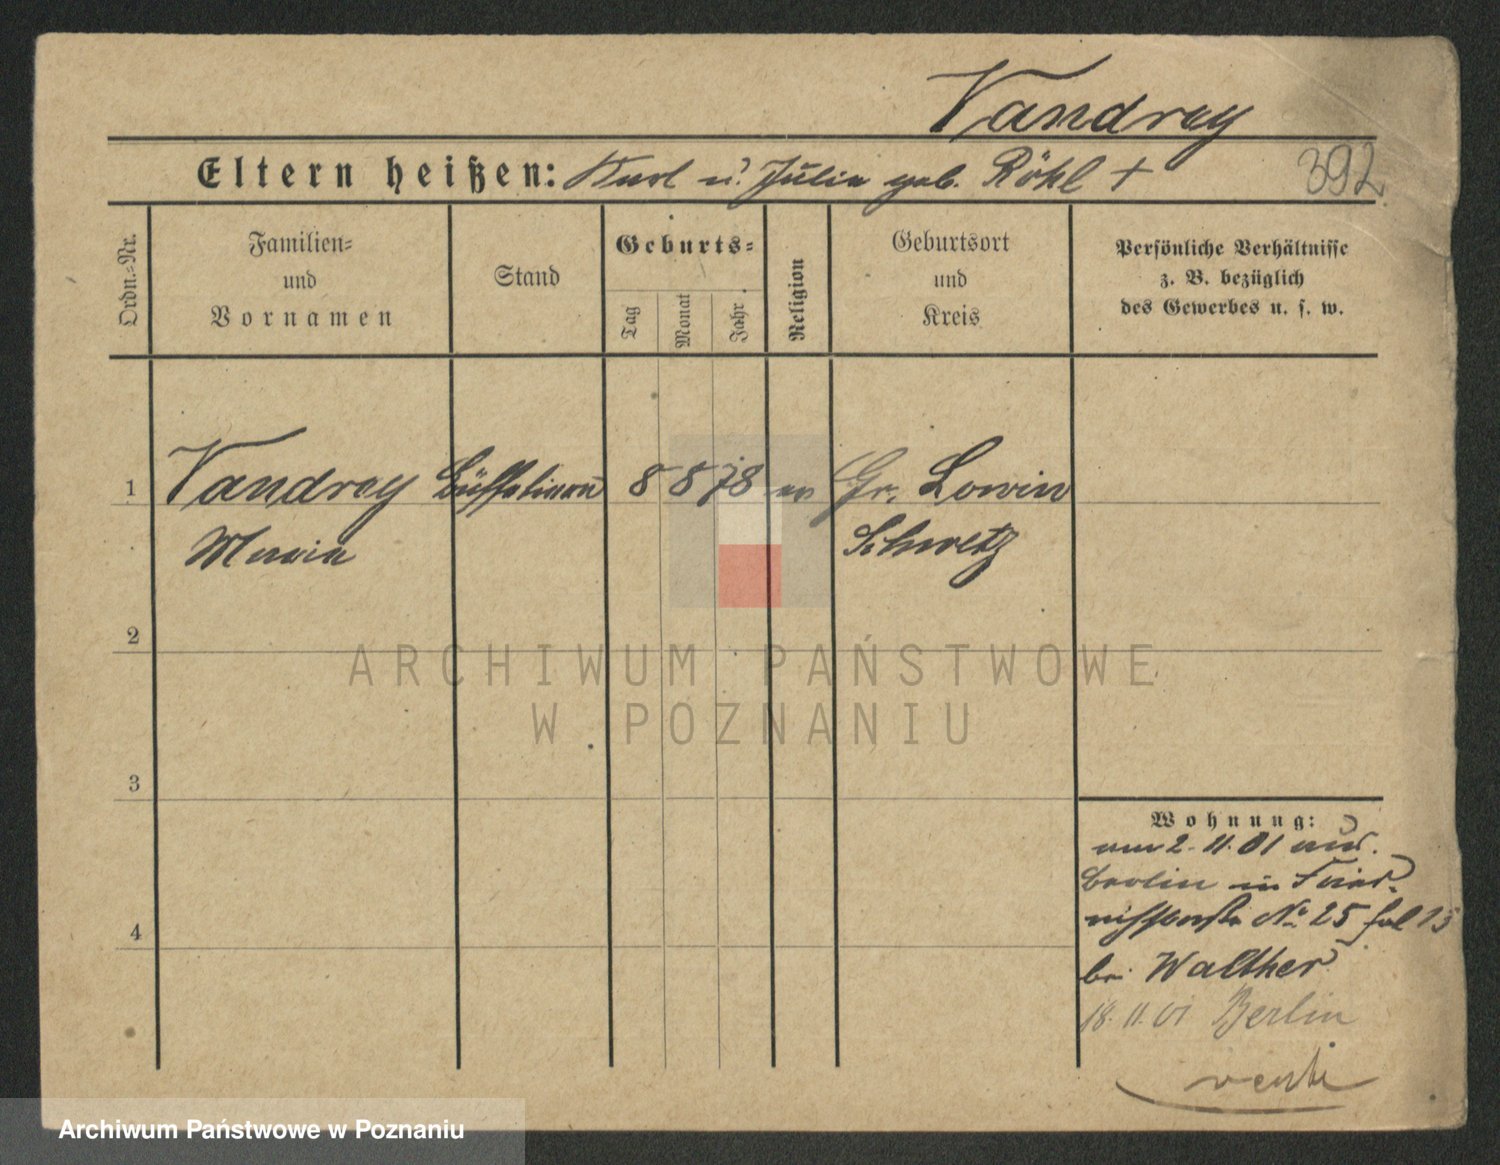 Vandrey
Eltern heißen: Karl u. Julia geb. Röhl +
392
Ordn.=Nr.
Familien=
und
Vornamen
Stand
Geburts=
Tag
Monat
Jahr
Religion
Geburtsort
und
Kreis
Persönliche Verhältnisse
z. B. bezüglich
des Gewerbes u. s. w.
1
Vandrey
8 8 78 ev
Gr. Lowin
Maria
Schwetz
2
ARCHIWUM PAŃSTWOWE
W POZNANIU
3
Wohnung:
am 2. 11. 01 aus.
Berlin in
No 25
bei Walther
18. 11. 01 Berlin
4
Archiwum Państwowe w Poznaniu